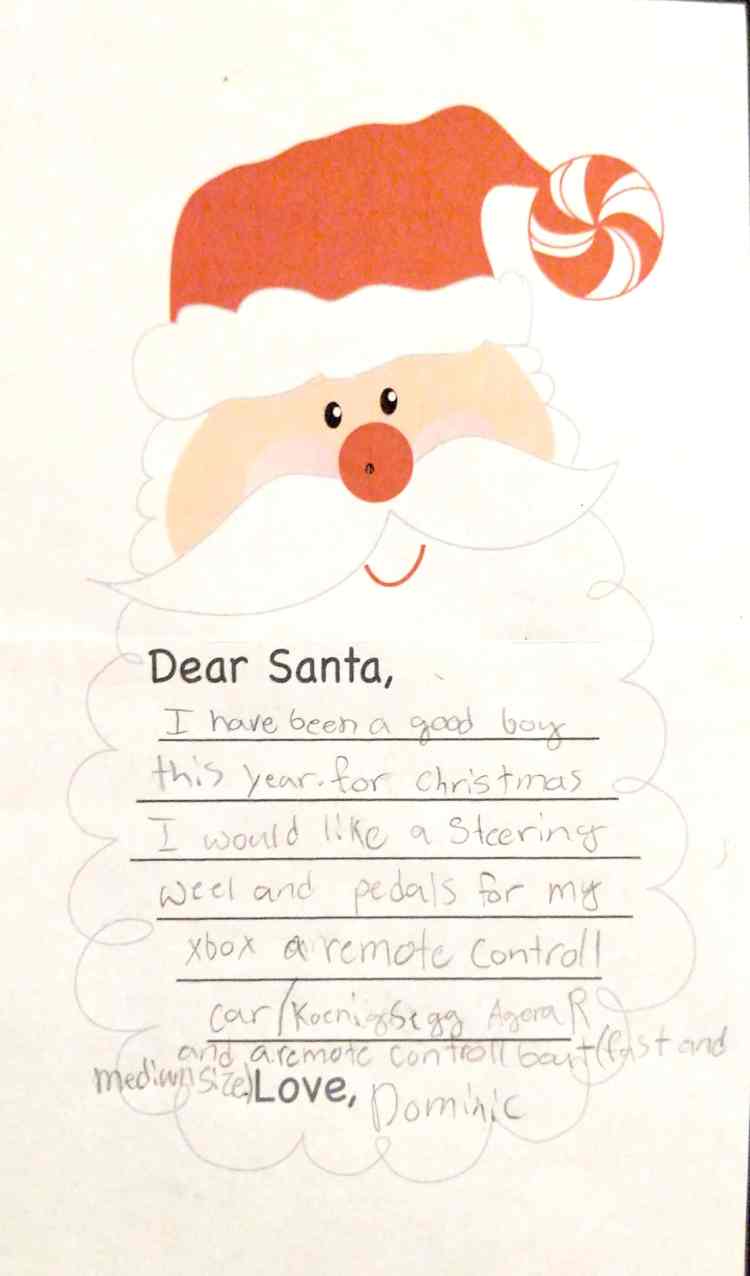 Dear Santa,
I have been a good boy
this year. for christmas
I would like a Steering
weel and pedals for my
xbox a remote controll
car/Koenigsegg Agera R
and a remote controll baut (fast and
medium size)
Love, Dominic